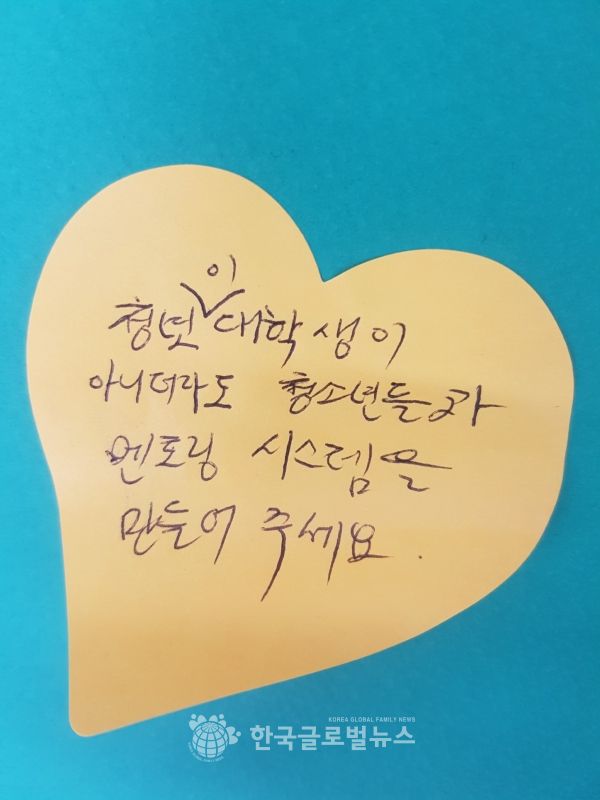 청벗이 대학생이
아니더라도 청소년들과
멘토링 시스템을
만들어 주세요.
KOREA GLOBAL FAMILY NEWS
한국글로벌뉴스